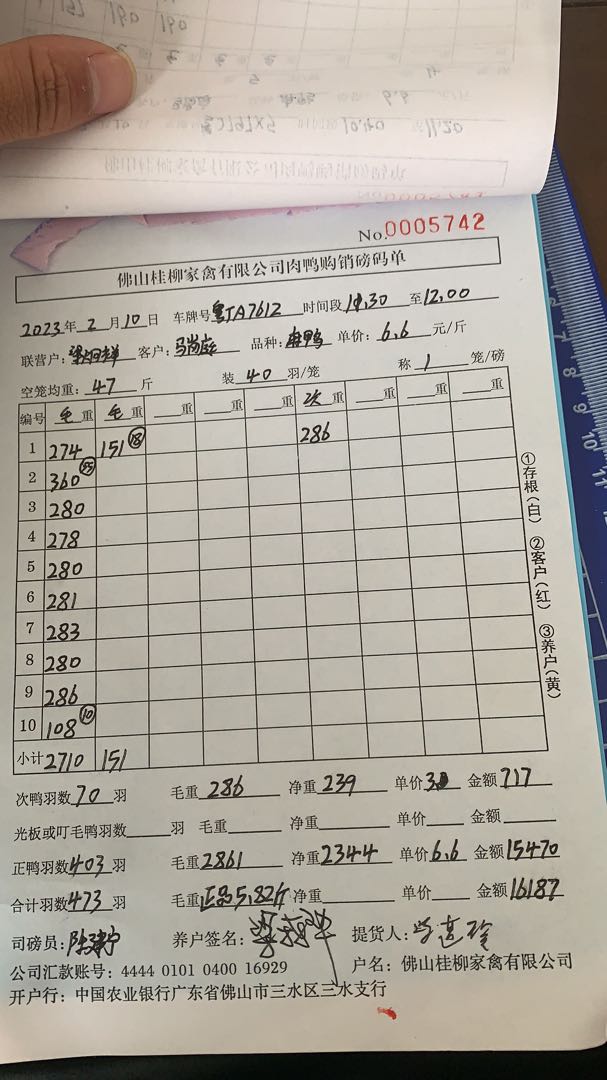 No.0005742
佛山桂柳家禽有限公司肉鸭购销磅码单
2023年 2 月 10 日 车牌号 粤JA7612 时间段 11.30 至 12.00
联营户: 客户: 品种: 单价: 6.6 元/斤
空笼均重: 47 斤 装 40 羽/笼 称 1 笼/磅
编号 毛 重 毛 重 重 重 重 次 重 重 重 重
1 274 151 (18) 286
2 360 (55)
3 280
4 278
5 280
6 281
7 283
8 280
9 286
10 108 (10)
小计 2710 151
次鸭羽数 70 羽 毛重 286 净重 239 单价 金额 717
光板或叮毛鸭羽数 羽 毛重 净重 单价 金额
正鸭羽数 403 羽 毛重 2861 净重 2344 单价 6.6 金额 15470
合计羽数 473 羽 毛重 正品5.82斤 净重 单价 金额 16187
司磅员: 养户签名: 提货人:
公司汇款账号: 4444 0101 0400 16929 户名: 佛山桂柳家禽有限公司
开户行: 中国农业银行广东省佛山市三水区三水支行
①存根(白) ②客户(红) ③养户(黄)